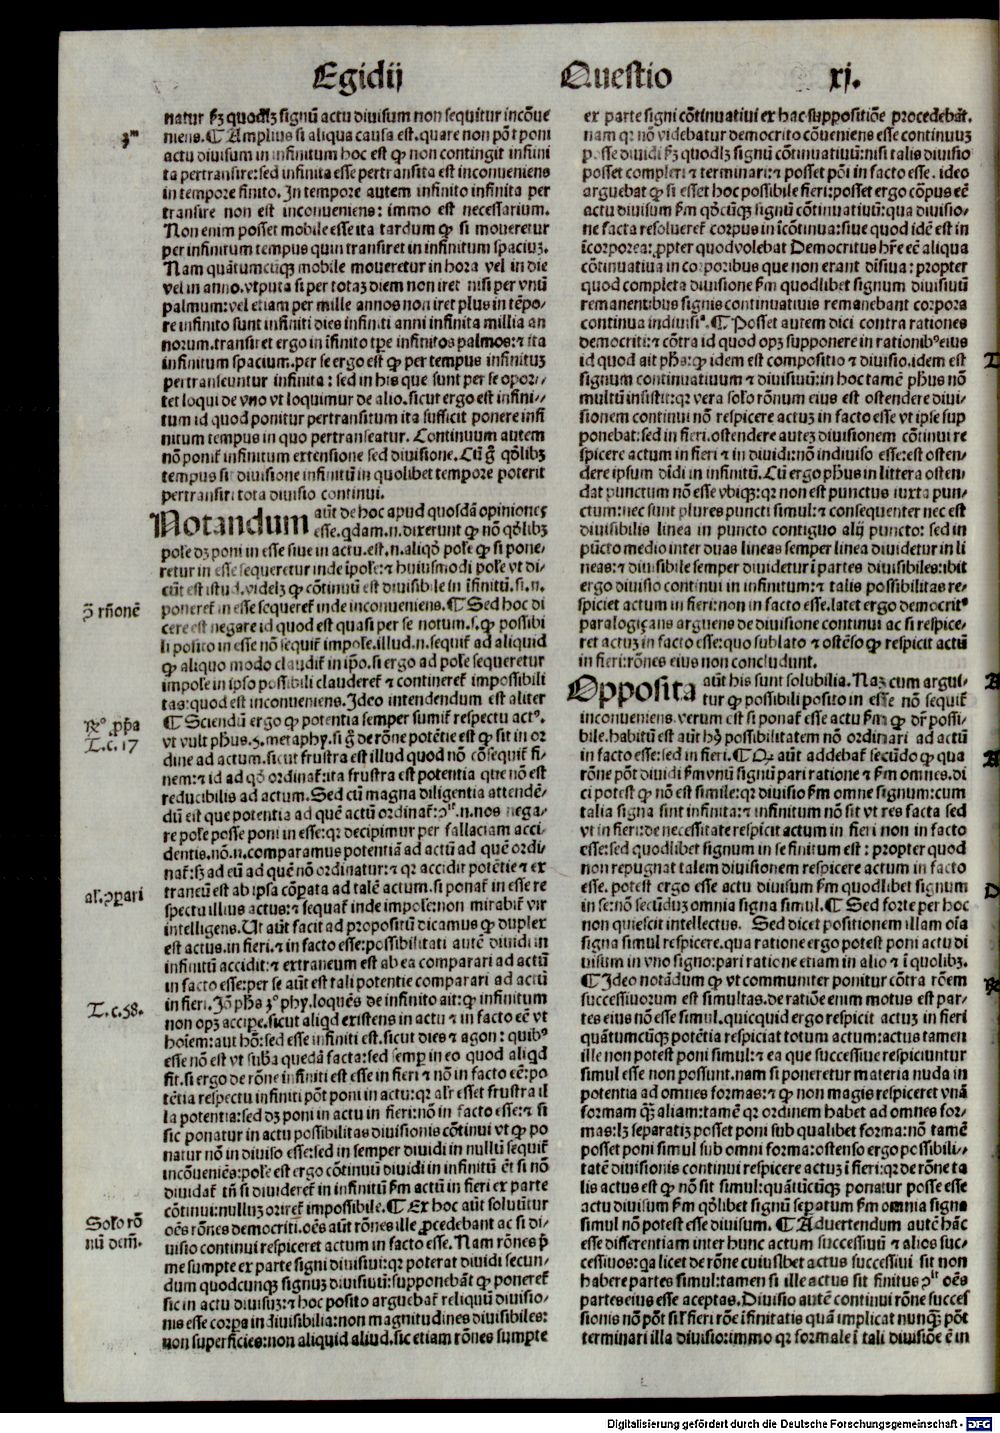 Egidij Questio xj.
natur ẜm quodlꝫ signū actu diuisum non sequitur incōue
niens.¶ Amplius si aliqua causa est.quare non pōt poni
actu diuisum in infinitum hoc est ꝙ non contingit infini
ta pertransire:sed infinita esse pertransita est inconueniens
in tempore finito. In tempore autem infinito infinita per
transire non est inconueniens: immo est necessarium.
Non enim posset mobile esse ita tardum ꝙ si moueretur
per infinitum tempus quin transiret in infinitum spaciuꝫ.
Nam quātumcūqꝫ mobile moueretur in hora vel in die
vel in anno.vtputa si per totaꝫ diem non iret nisi per vnū
palmum:vel etiam per mille annos non iret plus in tēpo⸗
re infinito sunt infiniti dies infiniti anni infinita millia an
norum.transiret ergo in īfinito tꝑe infinitos palmos:⁊ ita
infinitum spacium.per se ergo est ꝙ per tempus infinituꝫ
pertranseuntur infinita : sed in his que sunt per se opor⸗
tet loqui de vno vt loquimur de alio.sicut ergo est infini⸗
tum id quod ponitur pertransitum ita sufficit ponere infi
nitum tempus in quo pertranseatur. Continuum autem
nō ponit̄ infinitum extensione sed diuisione.Cū g̊ qōlibꝫ
tempus sit diuisione infinitū in quolibet tempore poterit
pertransiri tota diuisio continui.
Notandum aūt de hoc apud quosdā opiniones
esse.qdam.n.dixerunt ꝙ nō qōlibꝫ
pole dꝫ poni in esse siue in actu.est.n.aliqō pole ꝙ si pone⸗
retur in esse sequeretur inde īpole:⁊ huiusmodi pole vt di⸗
cūt est istud.videlꝫ ꝙ cōtinuū est diuisibile in īfinitū.si.n.
poneret̄ in esse sequeret̄ inde inconueniens.¶ Sed hoc di
cere est negare id quod est quasi per se notum.s.ꝙ possibi
li posito in esse nō sequit̄ impole.illud.n.sequit̄ ad aliquid
ꝙ aliquo modo claudit̄ in ip̄o.si ergo ad pole sequeretur
impole in ipso possibili clauderet̄ ⁊ contineret̄ impossibili
tas:quod est inconueniens.Ideo intendendum est aliter
¶ Sciendū ergo ꝙ potentia semper sumit̄ respectu actꝰ.
vt vult phus.5.metaphy.si g̊ de rōne potētie est ꝙ sit in or
dine ad actum.sicut frustra est illud quod nō cōsequit̄ fi⸗
nem:⁊ id ad qō ordinat̄:ita frustra est potentia que nō est
reducibilis ad actum.Sed cū magna diligentia attendē⸗
dū est que potentia ad quē actū ordinat̄:ↄ͛it̄.n.nos nega⸗
re pole posse poni in esse:qꝛ decipimur per fallaciam acci⸗
dentis.nō.n.comparamus potentiā ad actū ad quē ordi⸗
nat̄:sꝫ ad eū ad quē nō ordinatur:⁊ qꝛ accidit potētie ⁊ ex
traneū est ab ipsa cōpata ad talē actum.si ponat̄ in esse re
spectu illius actus:⁊ sequat̄ inde impole:non mirabit̄ vir
intelligens.Ut aūt facit ad propositū dicamus ꝙ duplex
est actus.in fieri.⁊ in facto esse:possibilitati autē diuidi in
infinitū accidit:⁊ extraneum est ab ea comparari ad actū
in facto esse:per se aūt est tali potentie comparari ad actū
in fieri.Iō ph̄s 3ͦ phy.loquēs de infinito ait:ꝙ infinitum
non opꝫ accipe.sicut aliqd existens in actu ⁊ in facto eē vt
hoīem:aut hō:sed esse infiniti est.sicut dies ⁊ agon: quibꝰ
esse nō est vt suba quedā facta:sed semp in eo quod aliqd
fit.si ergo de rōne infiniti est esse in fieri ⁊ nō in facto eē:po
tētia respectu infiniti pōt poni in actu:qꝛ alr̄ esset frustra il
la potentia:sed dꝫ poni in actu in fieri:nō in facto esse:⁊ si
sic ponatur in actu possibilitas diuisionis cōtinui vt ꝙ po
natur nō in diuiso esse:sed in semper diuidi in nullū sequit̄
incōueniēs:pole est ergo cōtinuū diuidi in infinitū ēt si nō
diuidat̄ tn̄ si diuideret̄ in infinitū ẜm actū in fieri ex parte
cōtinui:nulluꝫ oriret̄ impossibile.¶ Ex hoc aūt soluūtur
oēs rōnes democriti.oēs aūt rōnes ille ꝓcedebant ac si di⸗
uisio continui respiceret actum in facto esse. Nam rōnes p̄
me sumpte ex parte signi diuisiui:qꝛ poterat diuidi secun⸗
dum quodcunqꝫ signuꝫ diuisiuū:supponebāt ꝙ poneret̄
sic in actu diuisuꝫ:⁊ hoc posito arguebat̄ reliquū diuisio⸗
nis esse corpa indiuisibilia:non magnitudines diuisibiles:
non superficies:non aliquid aliud.sic etiam rōnes sumpte
3ᵐ
ↄ̄ rn̄onē
Rͦ ꝓp̄a
T.c.17
al̄.ꝓpari
T.c.58.
Solo rō
nū dem̄.
ex parte signi cōtinuatiui ex hac suppositiōe procedebāt.
nam qꝛ nō videbatur democrito cōueniens esse continuuꝫ
posse diuidi ẜm quodlꝫ signū cōtinuatiuū:nisi talis diuisio
posset compleri ⁊ terminari:⁊ posset pōi in facto esse. ideo
arguebat ꝙ si esset hoc possibile fieri:posset ergo cōpus eē
actu diuisum ẜm qōcūqꝫ signū cōtinuatiuū:qua diuisio⸗
ne facta resolueret̄ corpus in īcōtinua:siue quod idē est in
īcorporea:ꝓpter quod volebat Democritus hr̄e eē aliqua
cōtinuatiua in corporibus que non erant diuisiua : propter
quod completa diuisione ẜm quodlibet signum diuisiuū
remanentibus signis continuatiuis remanebant corpora
continua indiuisiª.¶ Posset autem dici contra rationes
democriti:⁊ cōtra id quod opꝫ supponere in rationibꝰ eius
id quod ait ph̄s:ꝙ idem est compositio ⁊ diuisio.idem est
signum continuatiuum ⁊ diuisiuū:in hoc tamē phus nō
multū insistit:qꝛ vera solo rōnum eius est ostendere diui⸗
sionem continui nō respicere actuꝫ in facto esse vt ipse sup
ponebat:sed in fieri.ostendere auteꝫ diuisionem cōtinui re
spicere actum in fieri ⁊ in diuidi:nō indiuiso esse:est osten⸗
dere ipsum diuidi in infinitū.Cū ergo phus in littera osten⸗
dat punctum nō esse vbiqꝫ:qꝛ non est punctus iuxta pun⸗
ctum:nec sunt plures puncti simul:⁊ consequenter nec est
diuisibilis linea in puncto contiguo alij puncto: sed in
pūcto medio inter duas lineas semper linea diuidetur in li
neas:⁊ diuisibile semper diuidetur ī partes diuisibiles:ibit
ergo diuisio continui in infinitum:⁊ talis possibilitas re⸗
spiciet actum in fieri:non in facto esse.latet ergo democritꝰ
paralogiçans arguens de diuisione continui ac si respice⸗
ret actuꝫ in facto esse:quo sublato ⁊ ostēso ꝙ respicit actū
in fieri:rōnes eius non concludunt.
Opposita aūt his sunt solubilia. Naꝫ cum argui⸗
tur ꝙ possibili posito in esse nō sequit̄
inconueniens.verum est si ponat̄ esse actu ẜm ꝙ dr̄ possi⸗
bile.habitū est aūt hꝰ possibilitatem nō ordinari ad actū
in facto esse:sed in fieri.¶ Qꝛ aūt addebat̄ secūdo ꝙ qua
rōne pōt diuidi ẜm vnū signū pari ratione ⁊ ẜm omnes.di
ci potest ꝙ nō est simile:qꝛ diuisio ẜm omne signum:cum
talia signa sint infinita:⁊ infinitum nō sit vt res facta sed
vt in fieri:de necessitate respicit actum in fieri non in facto
esse:sed quodlibet signum in se finitum est : propter quod
non repugnat talem diuisionem respicere actum in facto
esse. potest ergo esse actu diuisum ẜm quodlibet signum
in se:nō secūduꝫ omnia signa simul.¶ Sed forte per hoc
non quiescit intellectus. Sed dicet positionem illam oīa
signa simul respicere.qua ratione ergo potest poni actu di
uisum in vno signo:pari ratione etiam in alio ⁊ ī quolibꝫ.
¶ Ideo notādum ꝙ vt communiter ponitur cōtra rōem
successiuorum est simultas.de ratiōe enim motus est par⸗
tes eius nō esse simul.quicquid ergo respicit actuꝫ in fieri
quātumcūqꝫ potētia respiciat totum actum:actus tamen
ille non potest poni simul:⁊ ea que successiue respiciuntur
simul esse non possunt.nam si poneretur materia nuda in
potentia ad omnes formas:⁊ ꝙ non magis respiceret vnā
formam q̄ꝫ aliam:tamē qꝛ ordinem habet ad omnes for⸗
mas:lꝫ separatiꝫ posset poni sub qualibet forma:nō tamē
posset poni simul sub omni forma:ostenso ergo possibili⸗
tatē diuisionis continui respicere actuꝫ ī fieri:qꝛ de rōne ta
lis actus est ꝙ nō sit simul:quātūcūqꝫ ponatur posse esse
actu diuisum ẜm qōlibet signū sepatum ẜm omnia signa
simul nō potest esse diuisum. ¶ Aduertendum autē hāc
esse differentiam inter hunc actum successiuū ⁊ alios suc⸗
cessiuos:qa licet de rōne cuiuslibet actus successiui sit non
habere partes simul:tamen si ille actus sit finitus ↄ͛it̄ oēs
partes eius esse aceptas.Diuisio autē continui rōne succes
sionis nō pōt sil̄ fieri rōe īfinitatis quā implicat nunq̄ꝫ pōt
terminari illa diuisio:immo qꝛ formale ī tali diuisiōe ē in
Digitalisierung gefördert durch die Deutsche Forschungsgemeinschaft - DFG